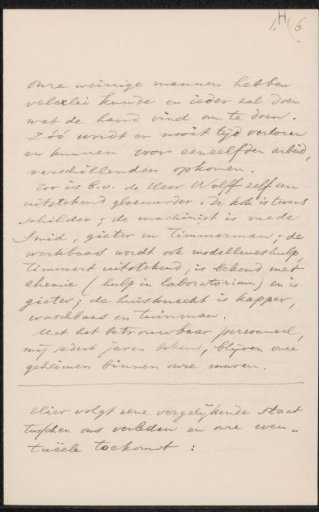 1. H 6
onze weinige mannen hebben
velerlei kunde en ieder zal doen
wat de hand vind om te doen.
Zóó wordt er nooit tijd verloren
en kunnen voor eenzelfden arbeid,
verschillenden opkomen.
Zoo is b.v. de Heer Wolff zelf een
uitstekend glasmeester. De kok is tevens
schilder; de machinist is mede
smid, gieter en timmerman; de
werkbaas wordt ook modelleurshulp
timmert uitstekend, is bekend met
chemie (hulp in laboratorium) en is
gieter; de huisknecht is kapper,
waschbaas en tuinman.
Met het betrouwbaar personeel,
mij sedert jaren bekend, blijven onze
geheimen binnen onze muren.
Hier volgt eene vergelijkende staat
tusschen ons verleden en onze even-
tuëele toekomst :